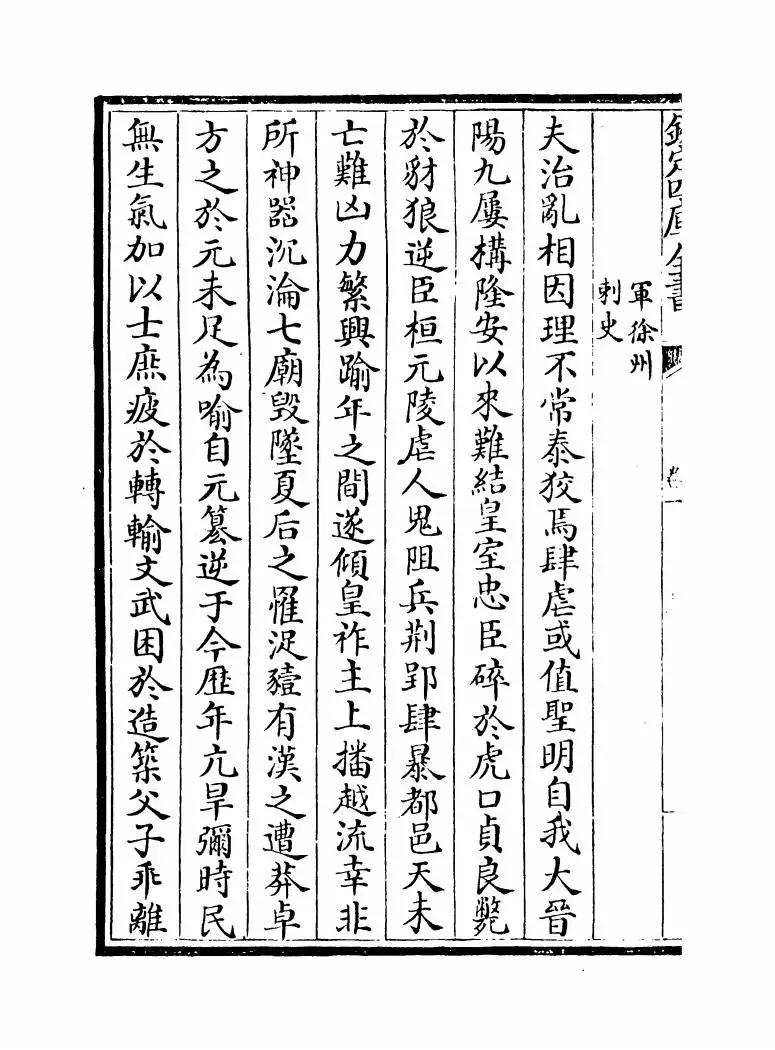 欽定四庫全書
卷一
軍徐州
刺史
夫治亂相因理不常泰狡焉肆虐或值聖明自我大晉
陽九屢構隆安以來難結皇室忠臣碎於虎口貞良斃
於豺狼逆臣桓元陵虐人鬼阻兵荆郢肆暴都邑天未
亡難凶力繁興踰年之間遂傾皇祚主上播越流幸非
所神器沉淪七廟毁墜夏后之罹浞豷有漢之遭莽卓
方之於元未足為喻自元簒逆于今歴年亢旱彌時民
無生氣加以士庶疲於轉輸文武困於造築父子乖離